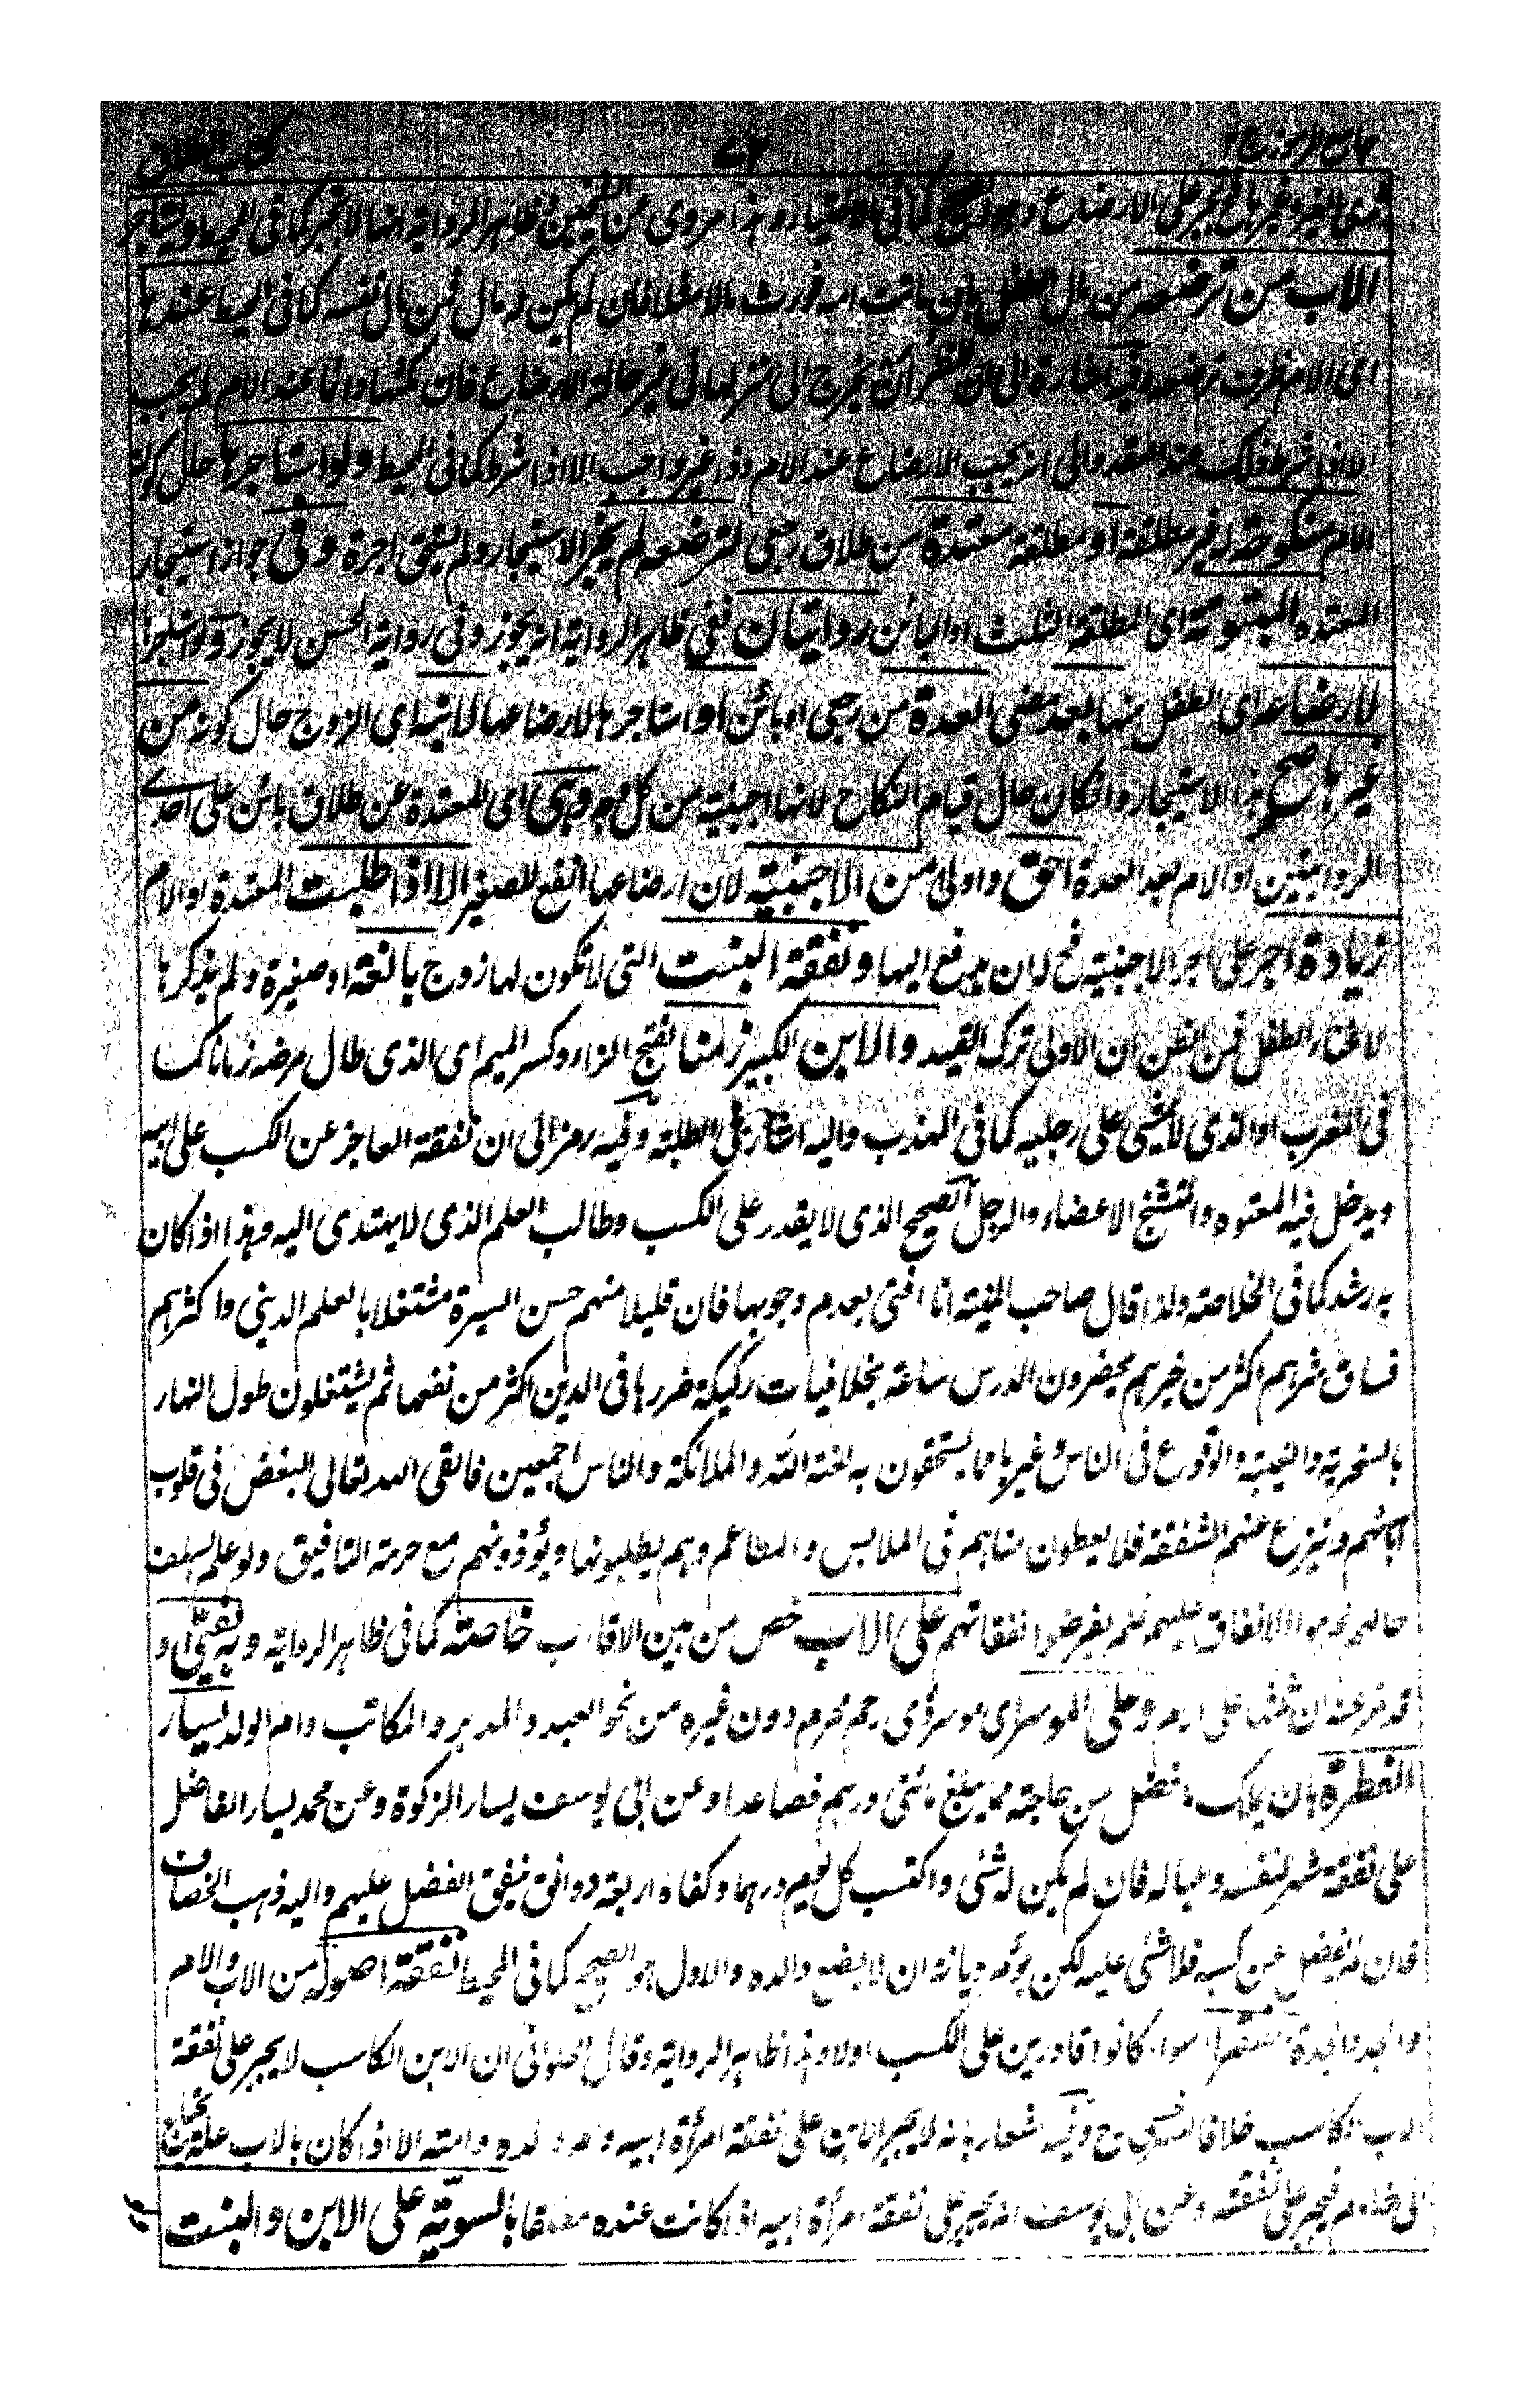 جامع الرموز ج ٢ كتاب الطلاق
ثدى الغير وغيرها تجبر على الارضاع وهو الصحيح كما فى وهذا مروى عن الشيخين وظاهر الرواية انها لا تجبر كما فى المحيط ويستاجر
الاب من ترضعه من مال الطفل بان ماتت امه فورث مالا مثلا فان لم يكن له مال فمن مال نفسه كما فى المحيط عندها
اى الام ظرف ترضعه وفيه اشارة الى ان للظئر ان تخرج الى منزلها فى غير حالة الارضاع فان مكثها دائما عند الام لم يجب
الا اذا شرط ذلك عند العقد والى انه يجب الارضاع عند الام وذا غير واجب الا اذا شرط كما فى المحيط ولو استاجرها حال كون
الام منكوحة له غير مطلقة او مطلقة معتدة من طلاق رجعى لترضعه لم يجز الاستيجار ولم يستحق اجرة وفى جواز استيجار
المعتدة المبتوتة اى المطلقة الثلث او البائن روايتان ففى ظاهر الرواية انه يجوز وفى رواية الحسن لا يجوز ولو استاجرها
لارضاعه اى الطفل منها بعد مضى العدة من رجعى او بائن او استاجرها لارضاعها لابنه اى الزوج حال كونه من
غيرها صح هذا الاستيجار وان كان حال قيام النكاح لانها اجنبية من كل وجه وهى اى المعتدة عن طلاق بائن على احدى
الروايتين او الام بعد العدة احق واولى من الاجنبية لان ارضاعها انفع للصغير الا اذا طلبت المعتدة او الام
زيادة اجر على اجر الاجنبية فح له ان يدفع اليها ونفقة البنت التى لا تكون لها زوج بالغة او صغيرة ولم يذكرها
الطفل فمن الظن ان الاولى ترك القيد والابن الكبير زمنا بفتح الزاء وكسر الميم اى الذى طال مرضه زمانا كما
فى المغرب او الذى لا يمشى على رجليه كما فى المهذب واليه اشار فى الطلبة وفيه رمز الى ان نفقة العاجز عن الكسب على ابيه
ويدخل فيه المعتوه والمتشنج الاعضاء والرجل الصحيح الذى لا يقدر على الكسب وطالب العلم الذى لا يهتدى اليه وهذا اذا كان
به رشد كما فى الخلاصة ولذا قال صاحب المنية انا افتى بعدم وجوبها فان قليلا منهم حسن السيرة مشتغلا بالعلم الدينى واكثرهم
فساق شرهم اكثر من خيرهم يحضرون الدرس ساعة بخلافيات ركيكة ضررها فى الدين اكثر من نفعها ثم يشتغلون طول النهار
بالسخرية والغيبة والوقوع فى الناس وغيرها مما يستحقون به لعنة الله والملائكة والناس اجمعين فالقى الله تعالى البغض فى قلوب
آبائهم وينزع عنهم الشفقة فلا يعطون مناهم فى الملابس والمطاعم وهم يطلبونها ويؤذونهم مع حرمة التافيف ولو علم السلف
حالهم لحرموا الانفاق عليهم فلم يفرضوا نفقاتهم على الاب خص من بين الاقارب خاصة كما فى ظاهر الرواية وبه نفتى و
قد مر عنه ان ثلثها على امه وعلى الموسر اى موسر ذى رحم محرم دون غيره من نحو العبد والمدبر والمكاتب وام الولد يسار
الفطرة بان يملك ما فضل من حاجته مما يبلغ مئتى درهم فصاعدا وعن ابى يوسف يسار الزكوة وعن محمد يسار الفاضل
على نفقة شهر لنفسه وعياله فان لم يكن له شئ واكتسب كل يوم درهما وكفاه اربعة دوانق ينفق الفضل عليهم واليه ذهب الخصاف
فان لم يفضل عن كسبه فلا شئ عليه لكن يؤمر ديانة ان لا يضيع والده والاول هو الصحيح كما فى المحيط نفقة اصوله من الاب والام
والجد والجدة الفقراء سواء كانوا قادرين على الكسب اولا وهذا ظاهر الرواية وقال الحلوائى ان الابن الكاسب لا يجبر على نفقة
الاب الكاسب خلافا للسرخسى ح وفيه اشعار بانه لا يجبر الابن على نفقة امرأة ابيه وام ولده وامته الا اذا كان بالاب علة يحتاج
الى خادم فيجبر على نفقته وعن ابى يوسف انه يجبر على نفقة امرأة ابيه اذا كانت عنده مطلقا بالسوية على الابن والبنت